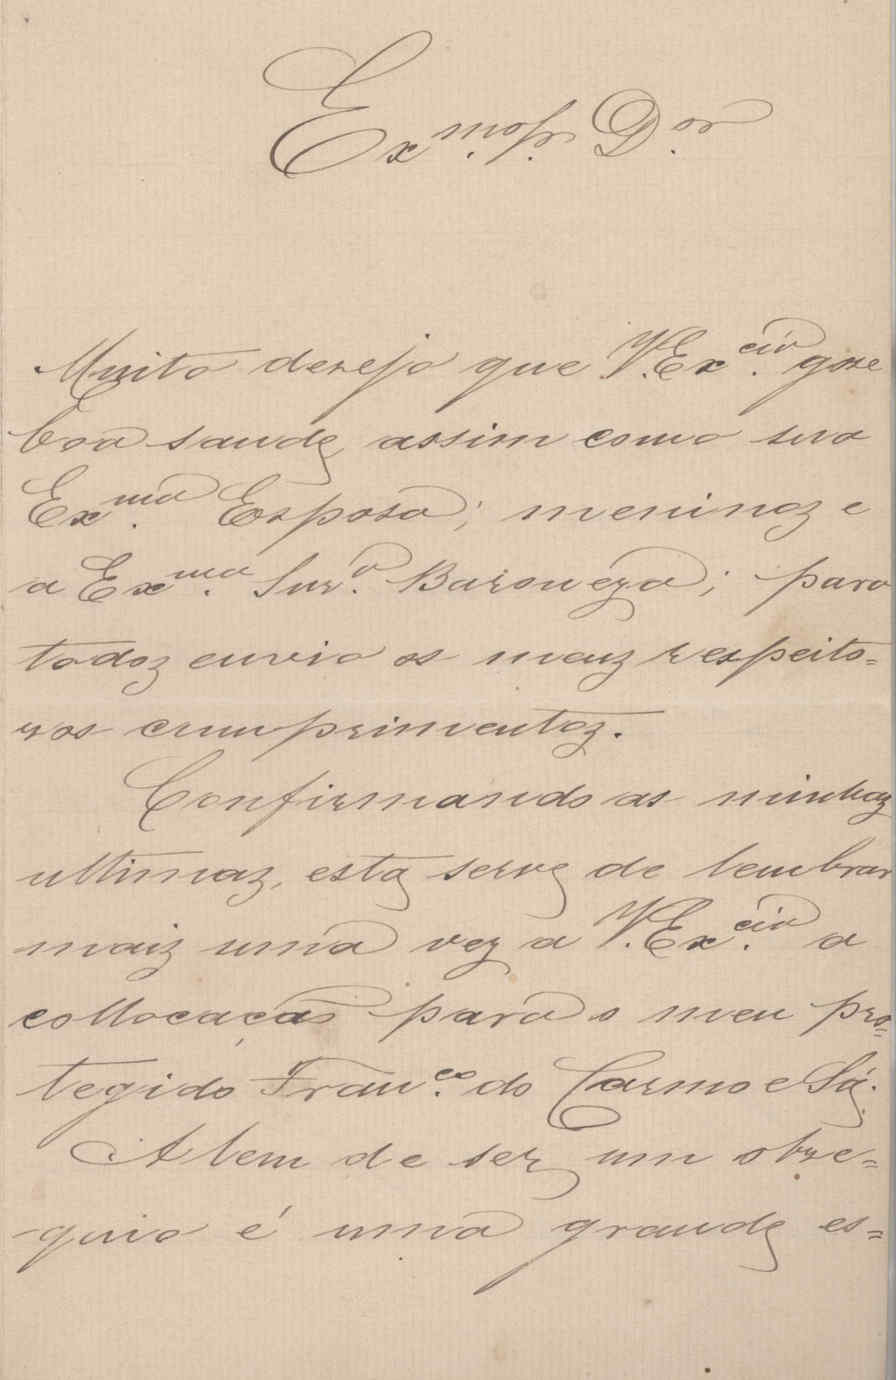 Exmo. Sr. Dor.
Muito desejo que V. Excia. gose
boa saude assim como sua
Exma. Esposa; meninos e
a Exma. Snra. Baroneza; para
todos envio os meus respeito=
sos cumprimentos.
Confirmando as minhas
ultimas, esta serve de lembrar
mais uma vez a V. Excia. a
collocação para o meu pro=
tegido Franco. do Carmo e Sá.
Alem de ser um obse=
quio é uma grande es=